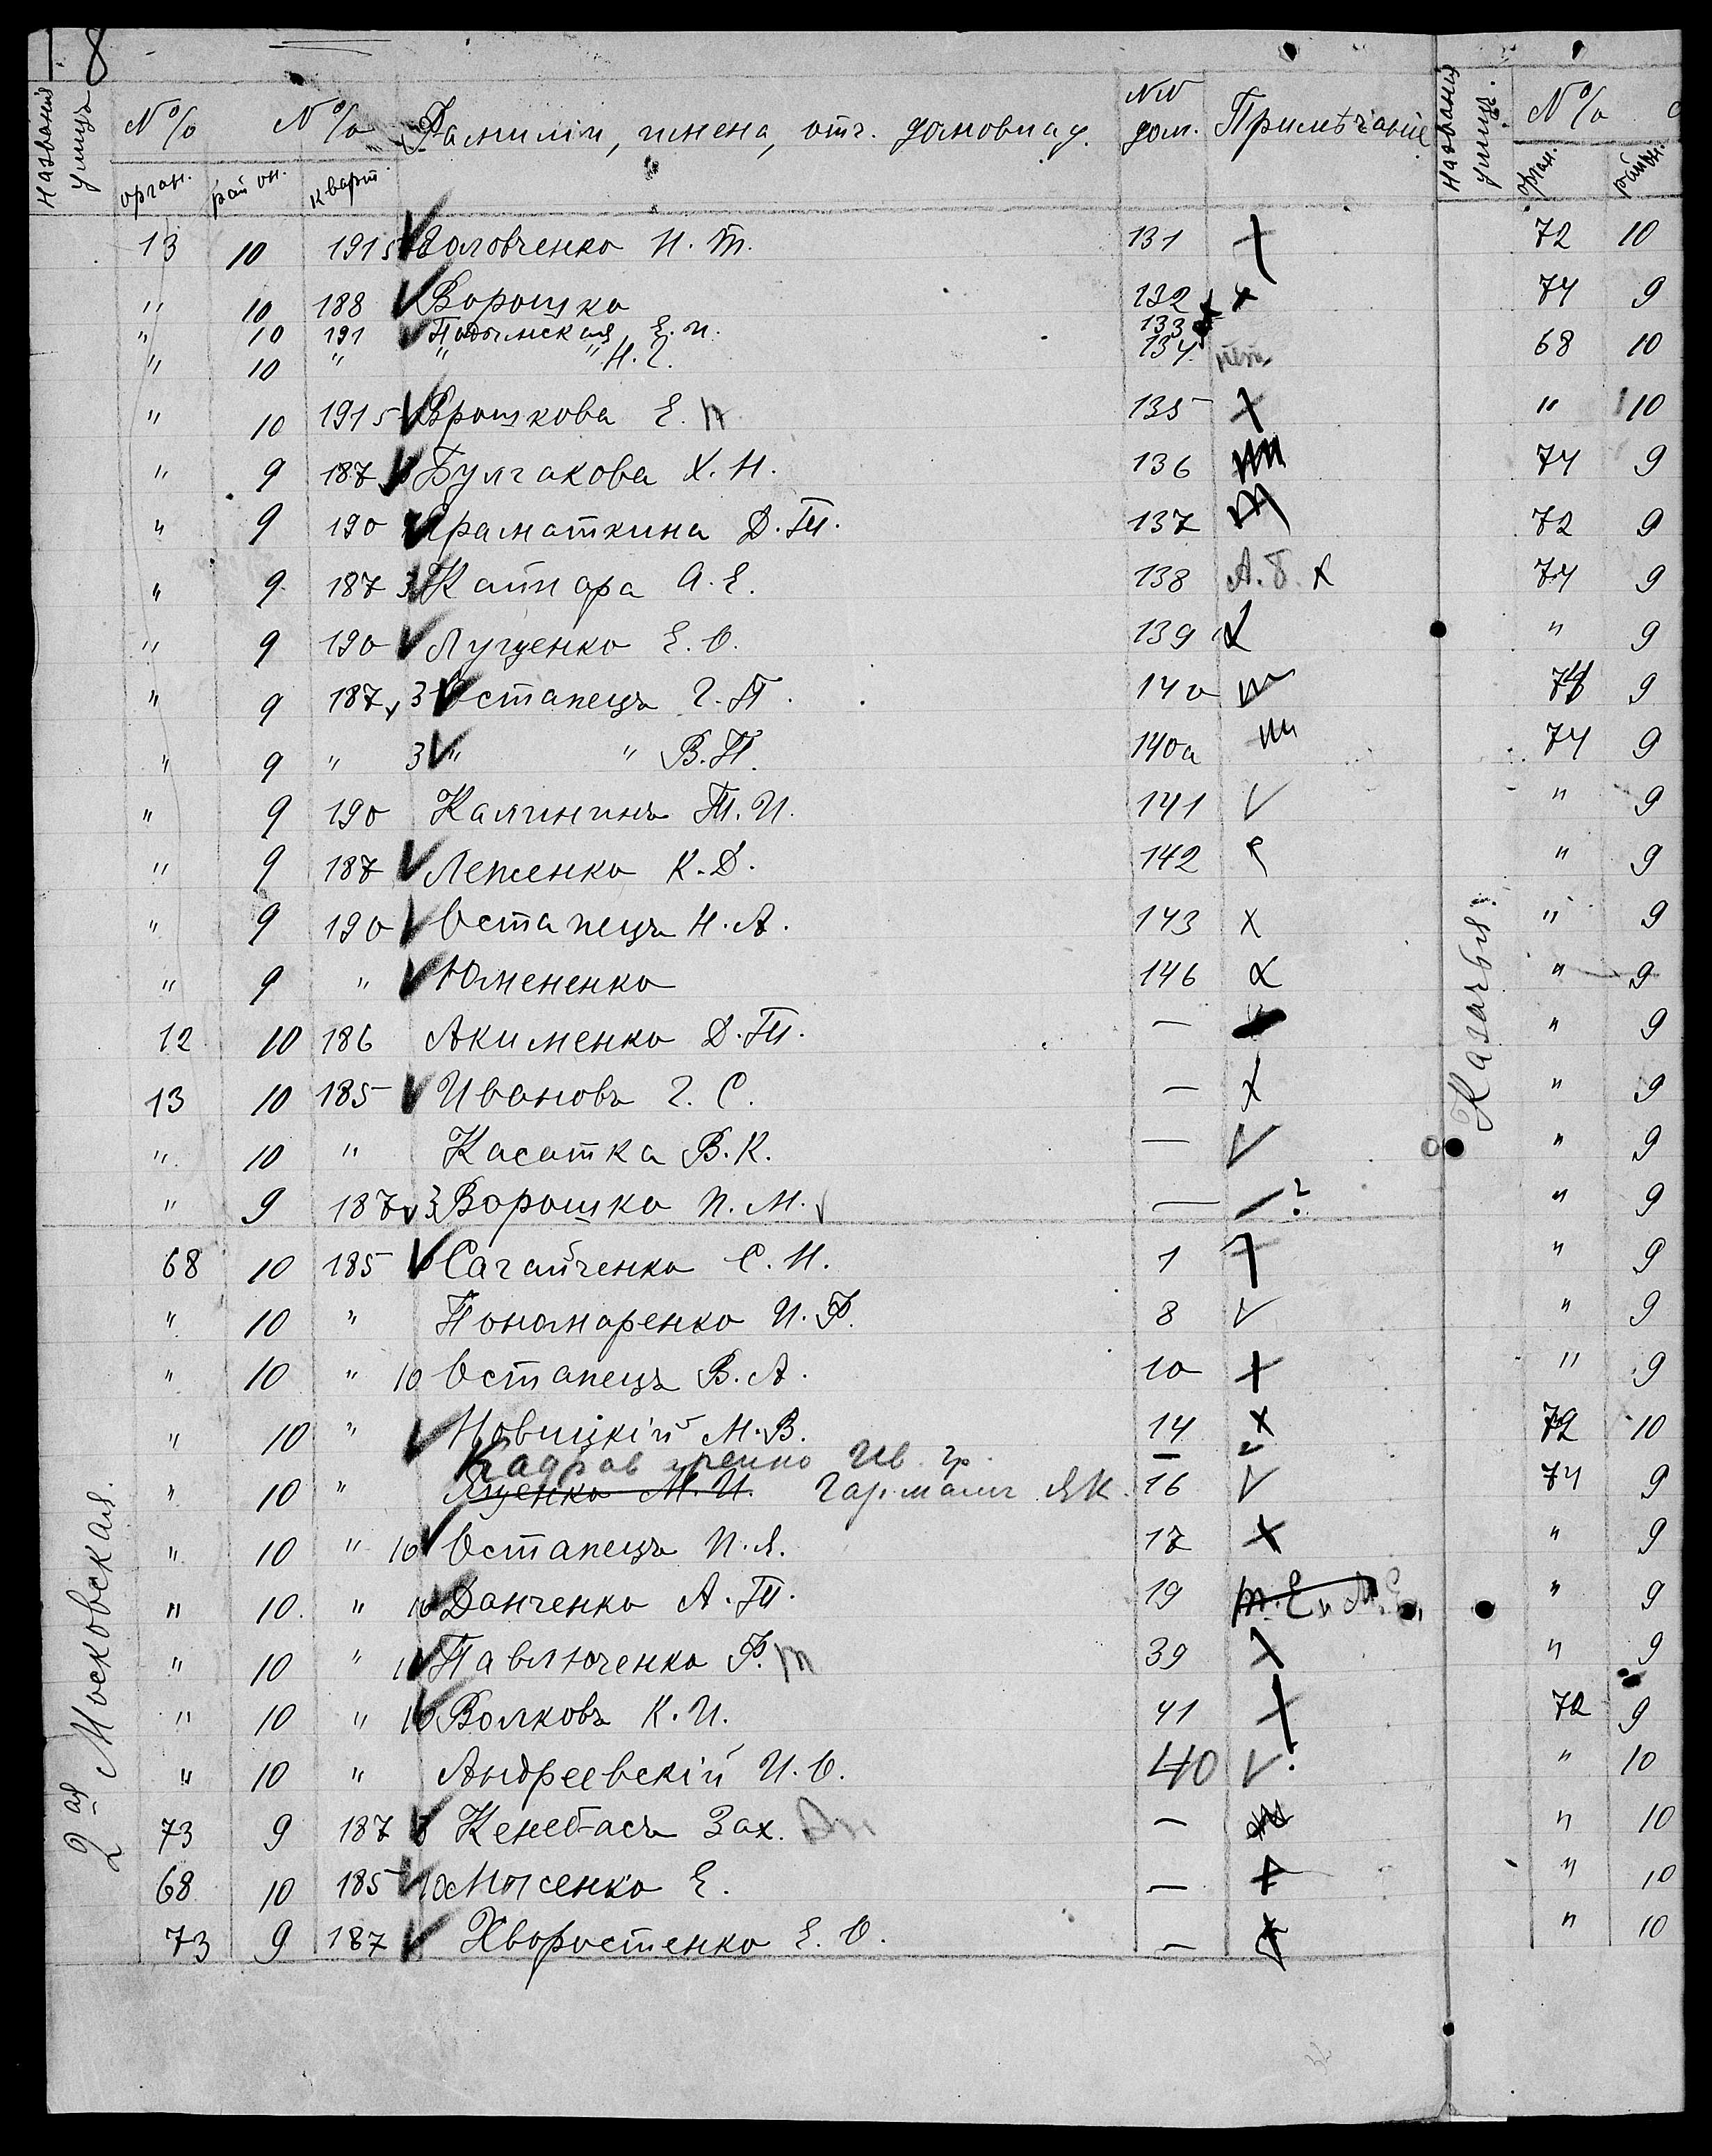 8
Названія улицъ № % № % Фамиліи, имена, отч. домовлад. №№ дом. Примѣчаніе
орган. район. кварт.
13 10 191 5 Головченко И. Т. 131 +
" 10 188 Ворошко 132 +
" 10 191 Подымская Е. И. 133
" 10 " " " Н. Г. 134 нѣтъ
" 10 191 5 Ярошкова Е. П 135 +
" 9 187 Булгакова Х. Н. 136
" 9 190 Граматкина Д. Т. 137
" 9 187 3 Кайнара А. Е. 138 А. Б. х
" 9 190 Луценко Е. О. 139
" 9 187 3 Остапецъ Г. П. 140 т
" 9 " 3 " " В. П. 140а т
" 9 190 Калининъ Т. И. 141 V
" 9 187 Леженко К. Д. 142
" 9 190 Остапецъ Н. А. 143 х
" 9 " Юмененко 146
12 10 186 Акименко Д. Т. —
13 10 185 Ивановъ Г. С. — х
" 10 " Касатка В. К. — V
" 9 187 3 Ворошко П. М. — ?
68 10 185 Сагайченко С. Н. 1
" 10 " Пономаренко И. Ф. 8 V
" 10 " 10 Остапецъ В. А. 10 +
" 10 " Новицкій М. В. 14 х
Ив. Гр.
" 10 " Яценко М. И. Гармаш Я К. 16 V
" 10 " 10 Остапецъ П. Я. 17 х
" 10 " 10 Данченко А. Т. 19
" 10 " Павлюченко Ф. т 39 х
" 10 " 10 Волковъ К. И. 41 +
" 10 " Андреевскій И. О. 40 V
73 9 187 Кенебасъ Зах. 
68 10 185 10 Мысенко Е. — +
73 9 187 Хворостенко Е. О. —
2ая Московская.
Названія улицъ. № %
орган. район.
72 10
74 9
68 10
" 10
74 9
72 9
74 9
" 9
74 9
74 9
" 9
" 9
" 9
" 9
" 9
" 9
" 9
" 9
" 9
" 9
" 9
72 10
74 9
" 9
" 9
" 9
72 9
" 10
" 10
" 10
" 10
Казачья.